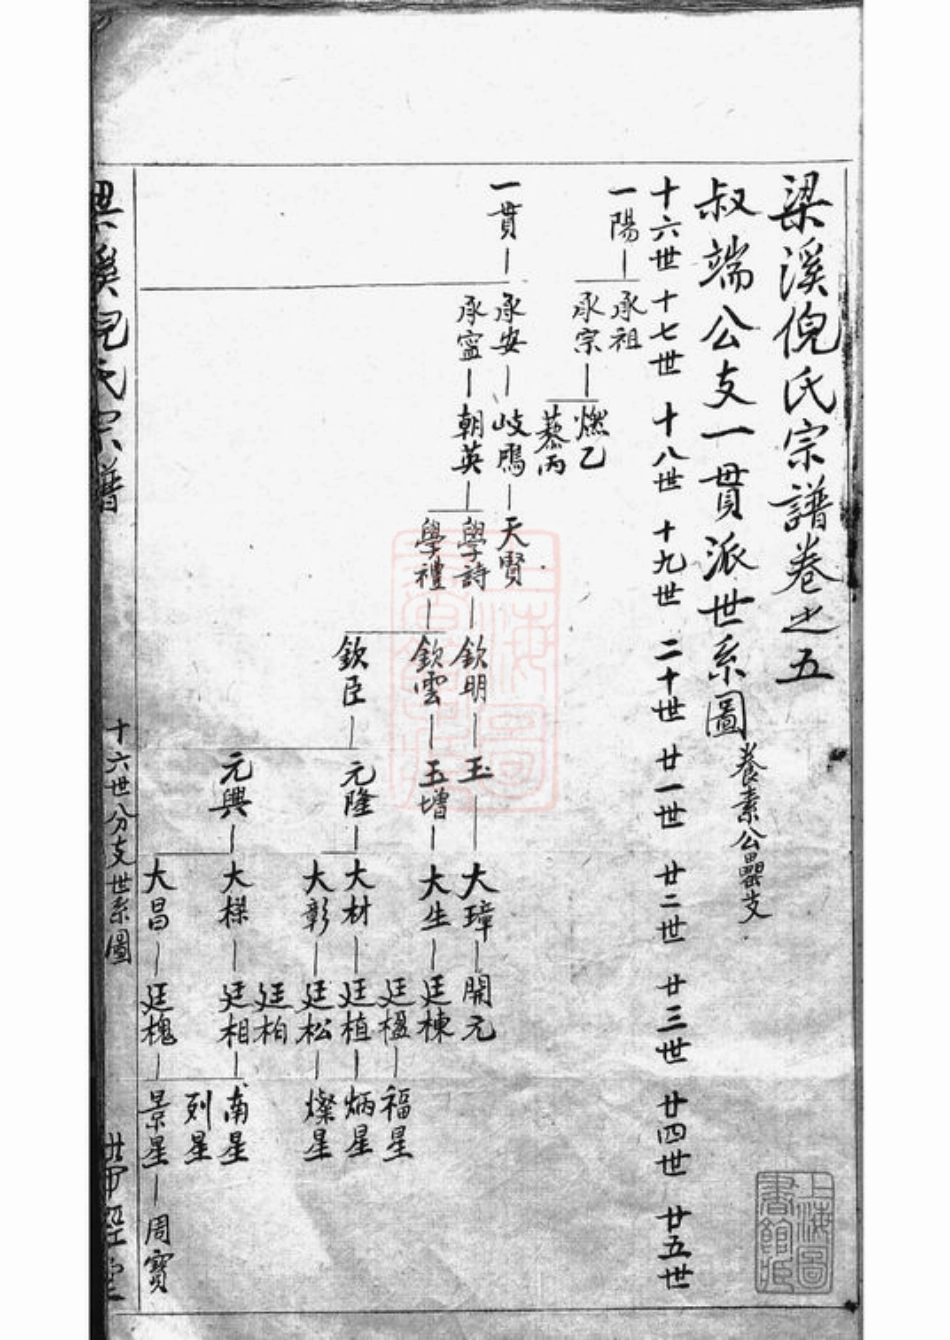 梁溪倪氏宗譜卷之五
叔端公支一貫派世系圖 養素公䍜支
十六世 十七世 十八世 十九世 二十世 廿一世 廿二世 廿三世 廿四世 廿五世
一陽 承祖
承宗 燃乙
藜丙
一貫 承安 岐鳳 天賢
承寧 朝英 學詩 欽明 玉 大璋 開元
學禮 欽雲 玉增 大生 廷棟
廷楹 福星
欽臣 元隆 大材 廷植 炳星
大彰 廷松 燦星
廷柏
元興 大樑 廷相 南星
列星
大昌 廷槐 景星 周寶
梁溪倪氏宗譜
十六世分支世系圖
帶經堂
上海圖書館藏